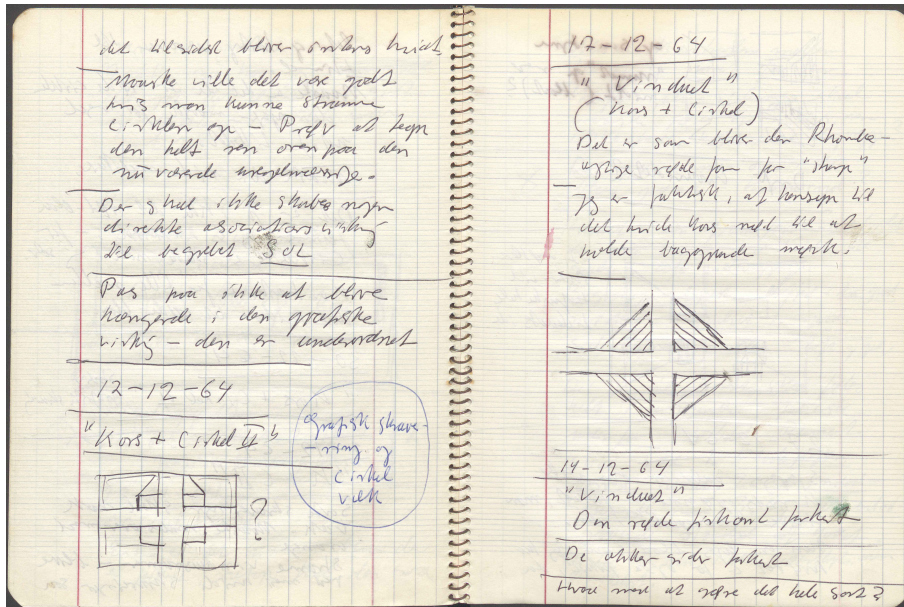 det tilsidst bliver
Maaske ville det være godt
hvis man kunne stramme
Cirklen op – Prøv at tegn
den helt ren oven paa den
nuværende uregelmæssige.
Der skal ikke skabes nogen
direkte asociations virkning
til begrebet SOL
Pas paa ikke at blive
hængende i den grafiske
virkning – den er underordnet
12-12-64
"Kors + Cirkel II"
?
grafisk skrave-
-ring og
cirkel
væk
17-12-64
"Vinduet"
(Kors + Cirkel)
Det er som bliver den Rhombe-
agtige røde form for "skarp"
Jeg er faktisk, af hensyn til
det hvide Kors nød til at
holde baggrunde mørk.
14-12-64
"Vinduet"
Den røde firkant forkert
De okker sider forkert
Hvad med at gøre det hele Sort?